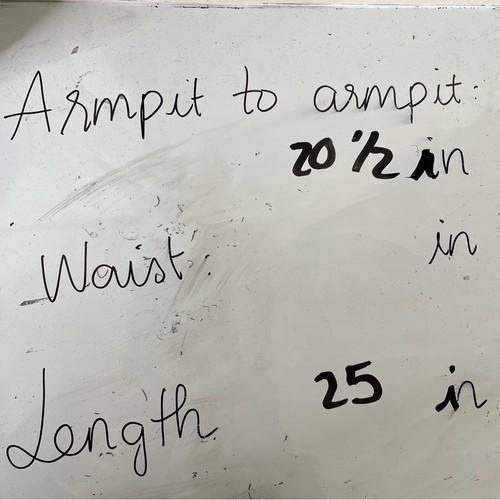 Armpit to armpit:
20 1/2 in
Waist: in
Length 25 in